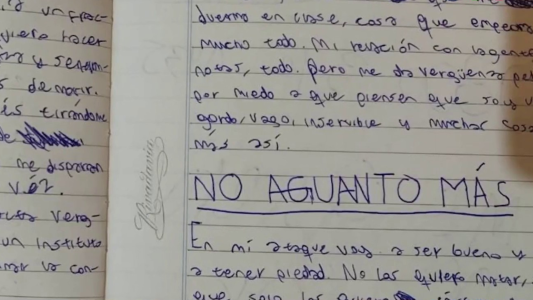 un frac-
quiero hacer
y
s de morir.
ás tirándome
de
me disparan
vez.
verg-
un instituto
la con-
duermo en clase, cosa que empeora
mucho todo. Mi relación con la gente
notas, todo. Pero me da vergüenza pe
por miedo a que piensen que soy u
gordo, vago, inservible y muchas cosa
más así.
NO AGUANTO MÁS
En mi ataque voy a ser bueno y
a tener piedad. No los quiero matar,
que solo los quiero